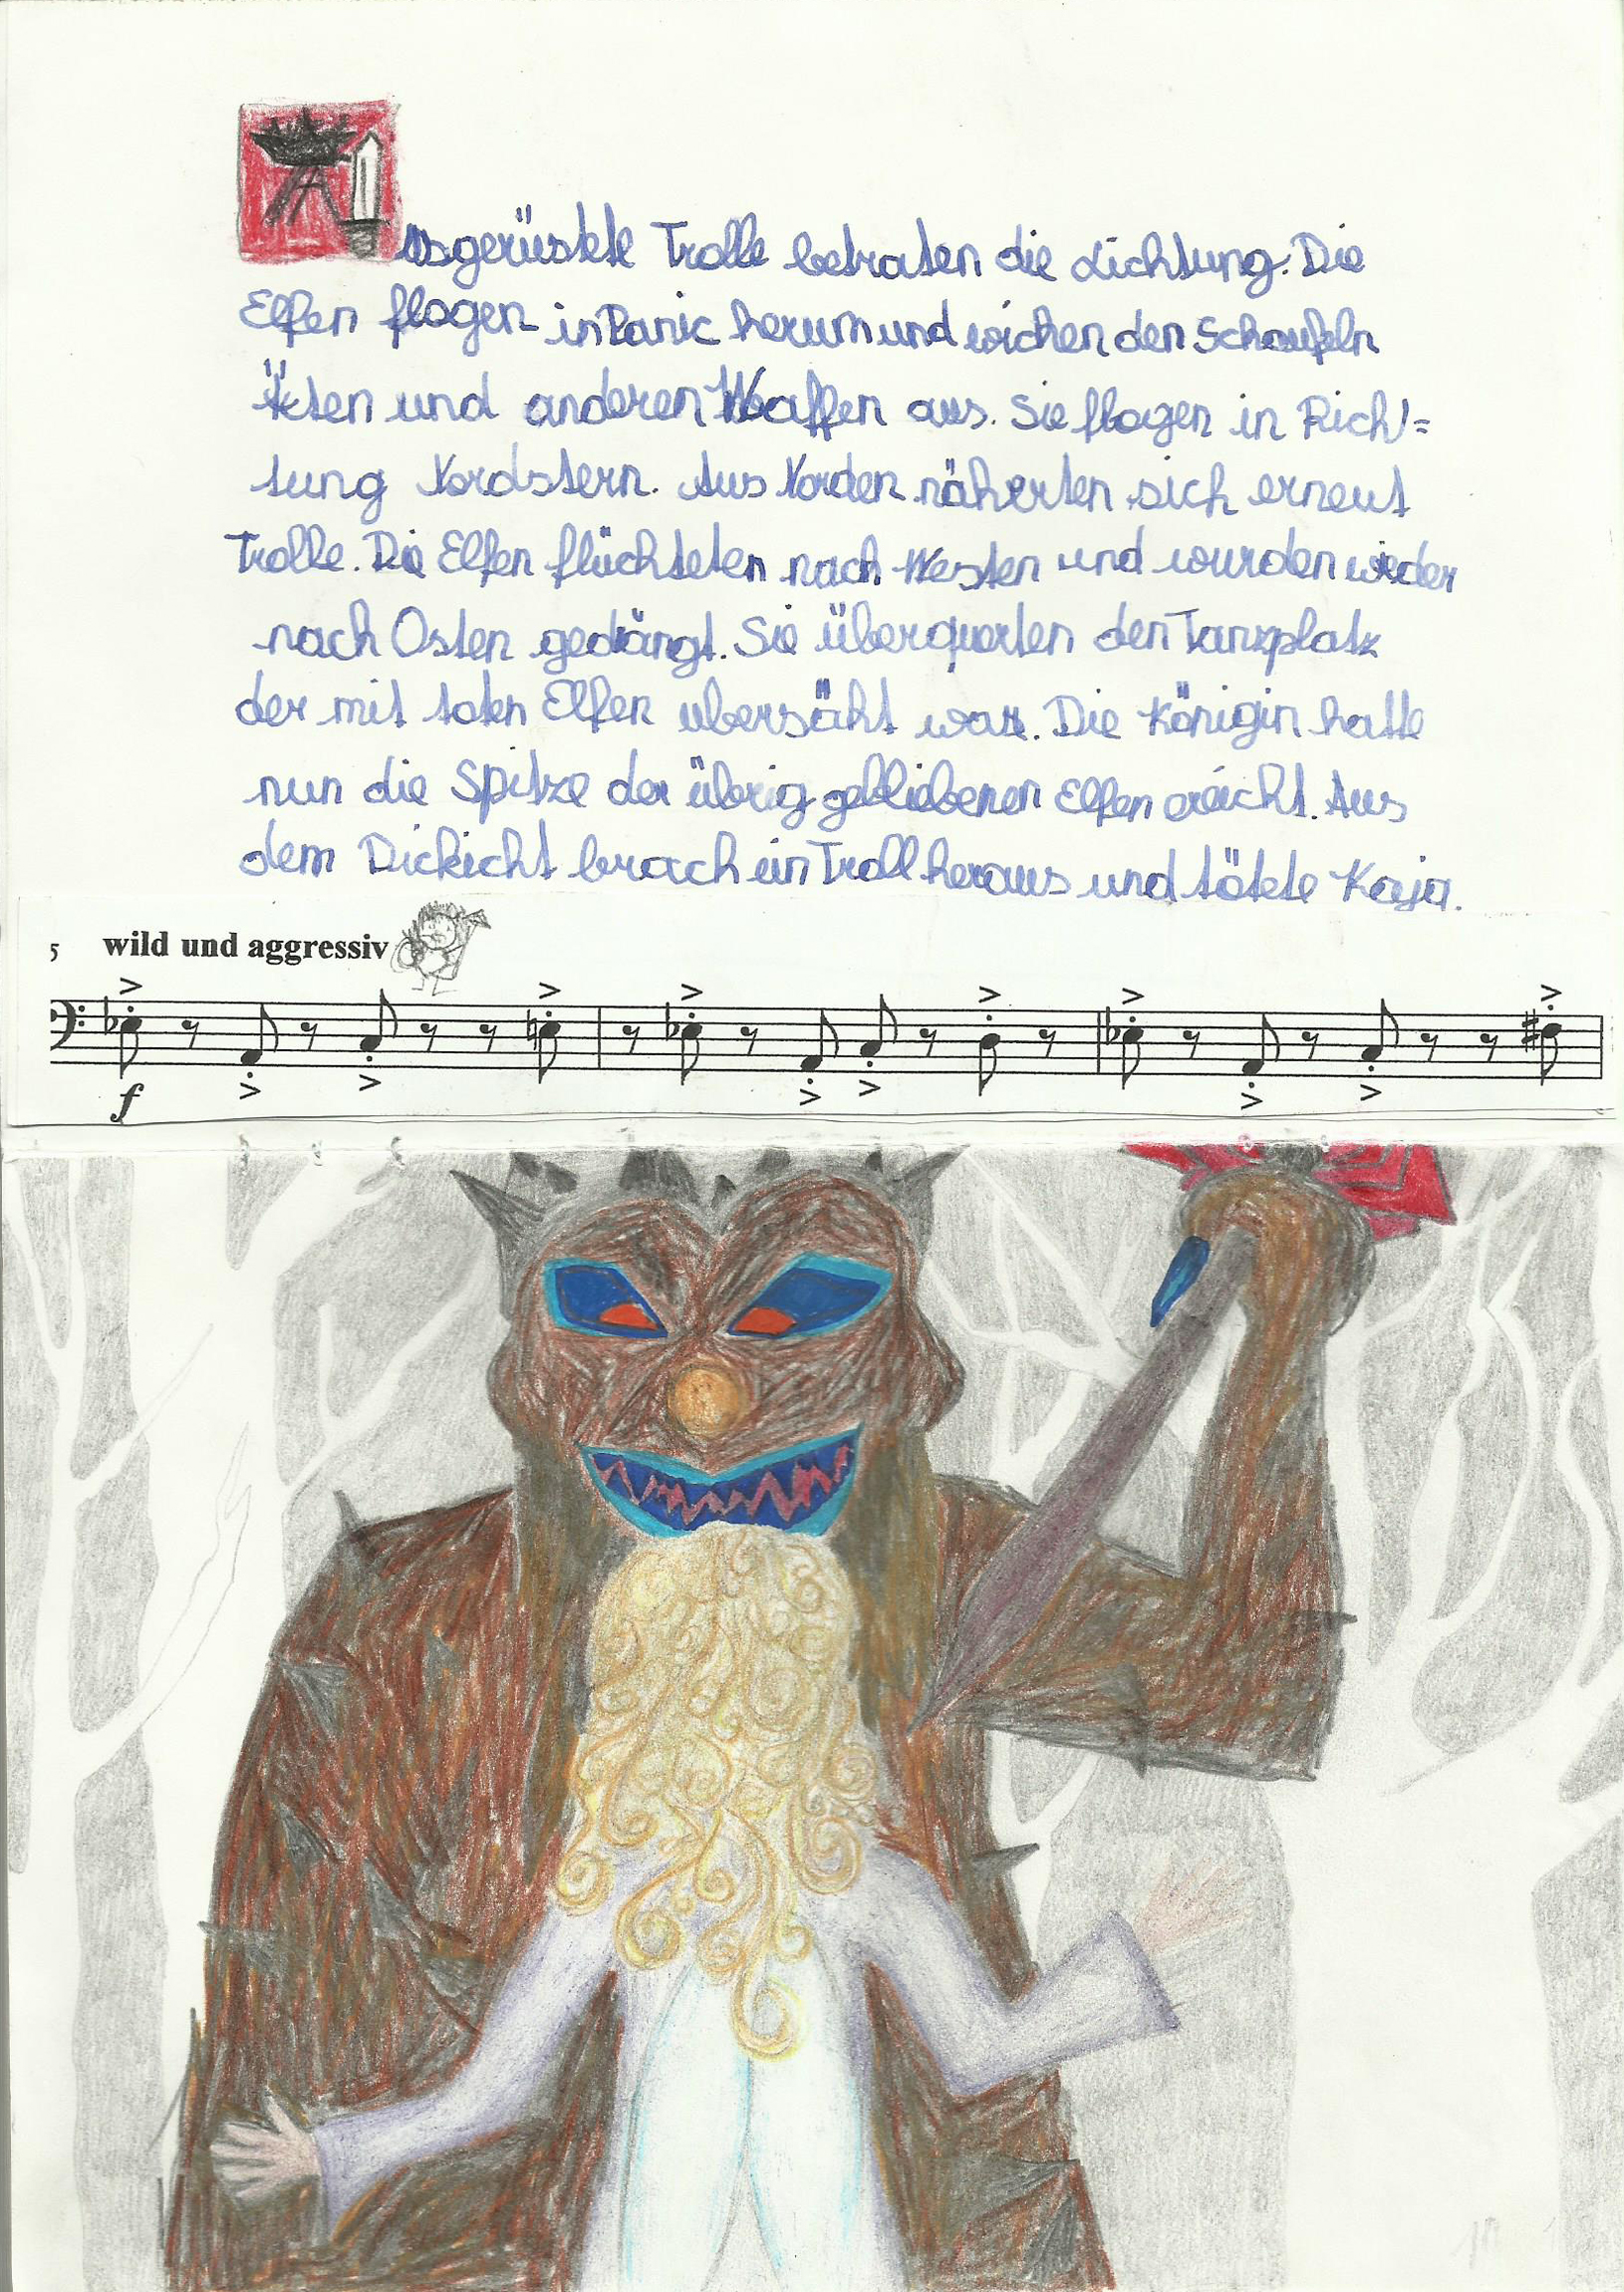 Ausgerüstete Trolle betraten die Lichtung. Die
Elfen flogen in Panic herum und wichen den Schaufeln
Äxten und anderen Waffen aus. Sie flogen in Rich=
tung Nordstern. Aus Norden näherten sich erneut
Trolle. Die Elfen flüchteten nach Westen und wurden wieder
nach Osten gedrängt. Sie überquerten den Tanzplatz
der mit toten Elfen ubersäht war. Die Königin hatte
nun die Spitze der übrig gebliebenen Elfen ereicht. Aus
dem Dickicht brach ein Troll heraus und tötete Kaja.
5 wild und aggressiv
f